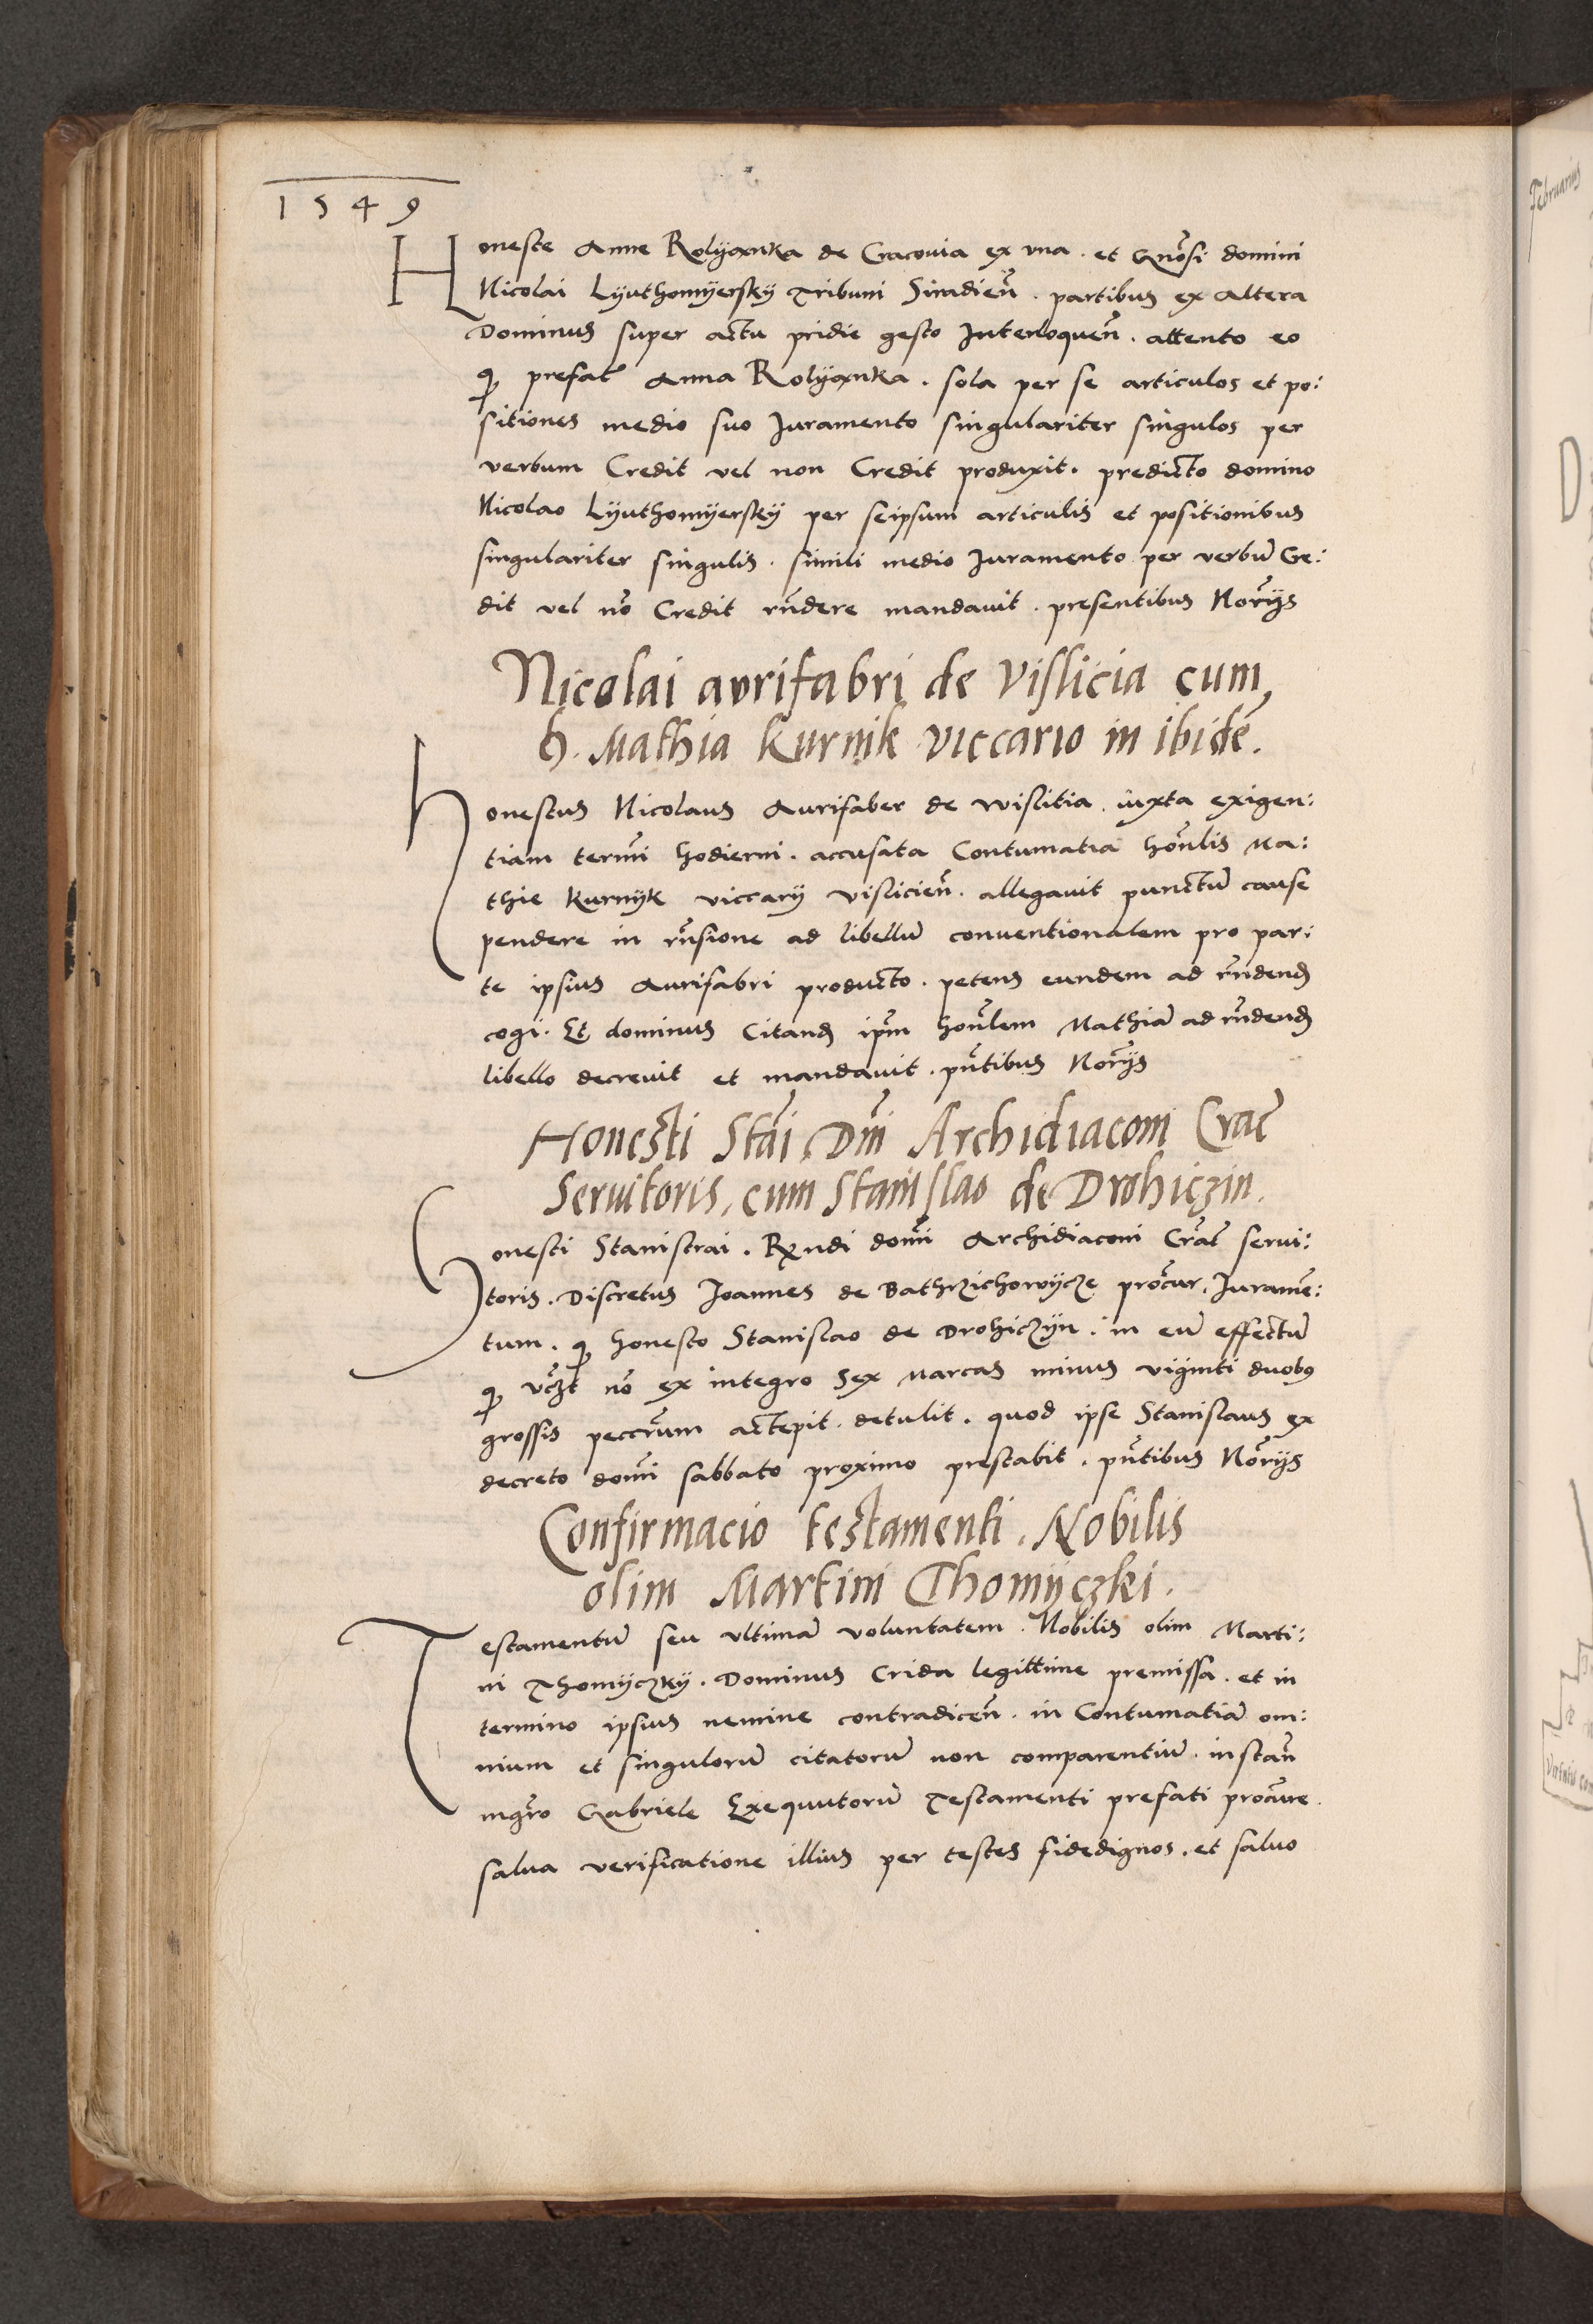 1549
Honeste Anne Rolyanka de Cracouia ex vna. et Gnosi domini
Nicolai Lyuthomyersky Tribuni Siradien̄. partibus ex Altera
Dominus super actu pridie gesto Interloquen̄. attento eo
ꝙ prefat̄ Anna Rolyanka. sola per se articulos et po:
sitiones medio suo Juramento singulariter singulos per
verbum Credit vel non Credit produxit. predicto domino
Nicolao Lyuthomyersky per seipsum articulis et positionibus
singulariter singulis. simili medio Juramento per verbū Cre:
dit vel nō Credit rn̄dere mandauit. presentibus Nor̄ijs
Nicolai aurifabri de Vislicia cum
h. Mathia Kurnik viccario in ibidē.
Honestus Nicolaus Aurifaber de wislitia. iuxta exigen:
tiam termi̅ hodierni. accusata Contumatia hon̄lis Ma:
thie Kurnyk viccarij vislicien̄. allegauit punctū cause
pendere in rn̄sione ad libellū conuentionalem pro par:
te ipsius Aurifabri producto. petens eundem ad rn̄dend̄
cogi. Et dominus Citand̄ ip̄m hon̄lem Mathiā ad rn̄dend̄
libello decreuit et mandauit. pn̄tibus Nor̄ijs
Honesti Stāi Dn̄i Archidiaconi Crac̄
Seruitoris, cum Stanislao de Drohiczin.
Honesti Stanislai. Rn̄di domi̅ Archidiaconi Crac̄ serui:
toris. Discretus Joannes de Bathrzichowycze procur̄. Juramē:
tum. ꝙ honesto Stanislao de Drohiczyn. in eū effectū
ꝙ vc̄zt nō ex integro Sex Marcas minus viginti duobꝰ
grossis pecc̄rum accepit. detulit. quod ipse Stanislaus ex
decreto domi̅ sabbato proximo prestabit. pn̄tibus Nor̄ijs
Confirmacio testamenti. Nobilis
olim Martini Thomyczki.
Testamentū seu vltimā voluntatem. Nobilis olim Marti:
ni Thomyczky. Dominus Crida legittime premissa. et in
termino ipsius nemine contradicen̄. in Contumatiā om:
nium et singulorū citatorū non comparentiū. instan̄
mgr̄o Gabriele Exequutorū Testamenti prefati procur̄e.
salua verificatione illius per testes fidedignos. et saluo
Februarius